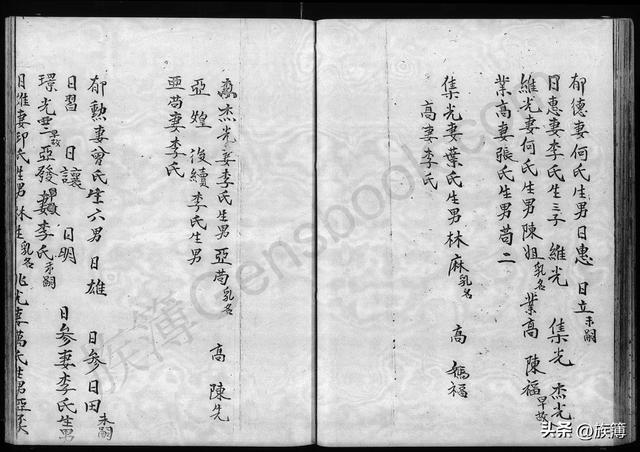 郁德妻何氏生男日惠 日立未嗣
日惠妻李氏生三子 維光 集光 杰光
維光妻何氏生男陳姐乳名 業高 陳福早故
業高妻張氏生男苟二
集光妻葉氏生男林麻乳名 高 媽福
高妻李氏
杰光妻李氏生男亞苟乳名 高 陳先
亞煌 後續李氏生男
亞苟妻李氏
郁勲妻曾氏 六男 日雄 日參 日田未嗣
日習 日讓 日明 日參妻李氏生男
璟光 早故 亞發 妻李氏未嗣
日雄妻邱氏生男林生乳名 兆光妻萬氏生男亞
族簿Gensbook.com
头条 @族簿